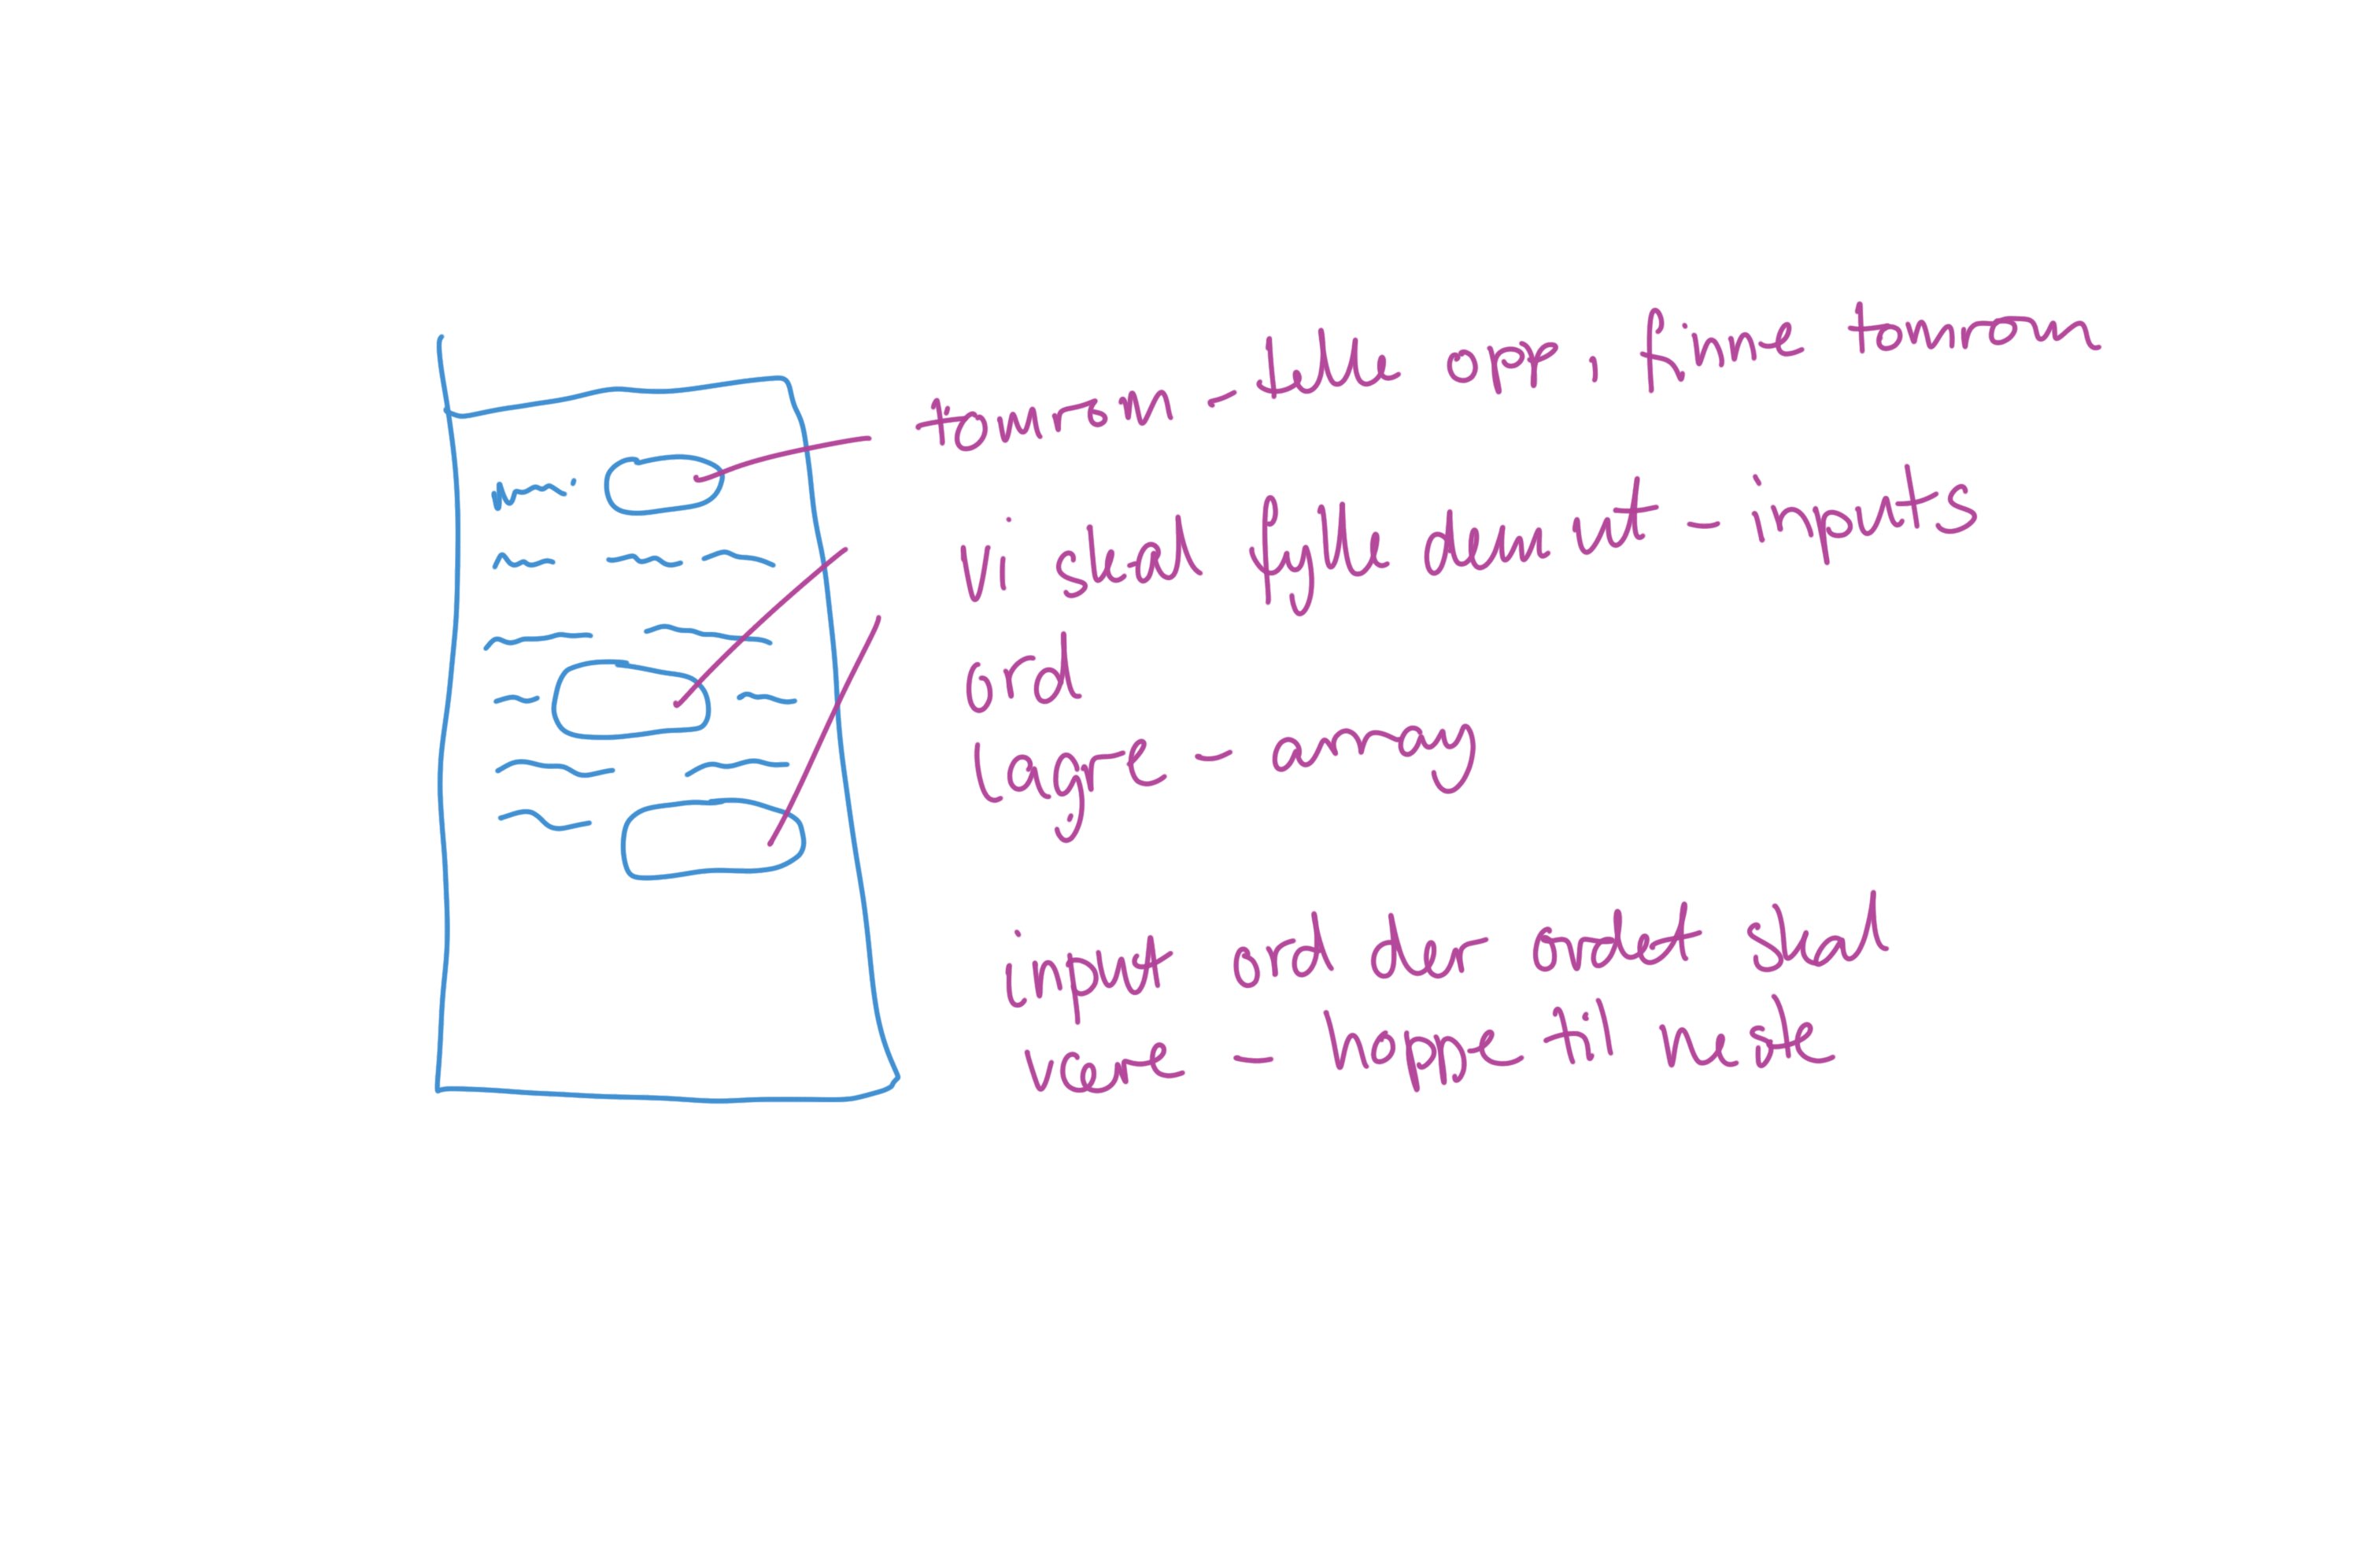 tomrom - telle opp, finne tomrom
vi skal fylle dem ut - inputs
ord
lagre - array
input ord der ordet skal
være - hoppe til neste